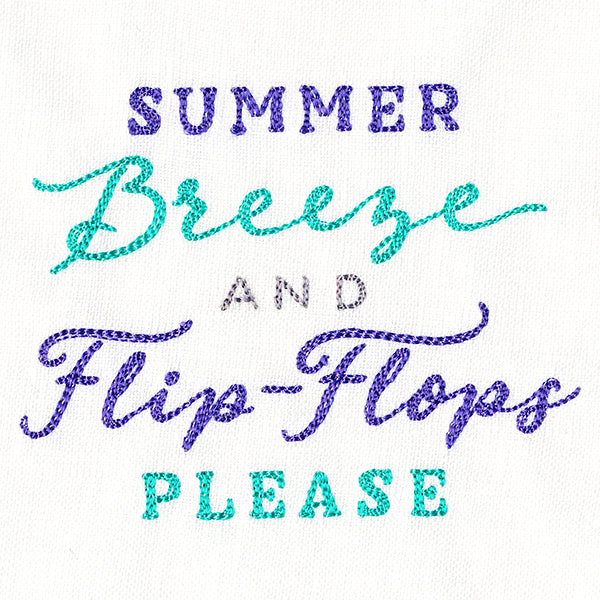 SUMMER
Breeze
AND
Flip-Flops
PLEASE